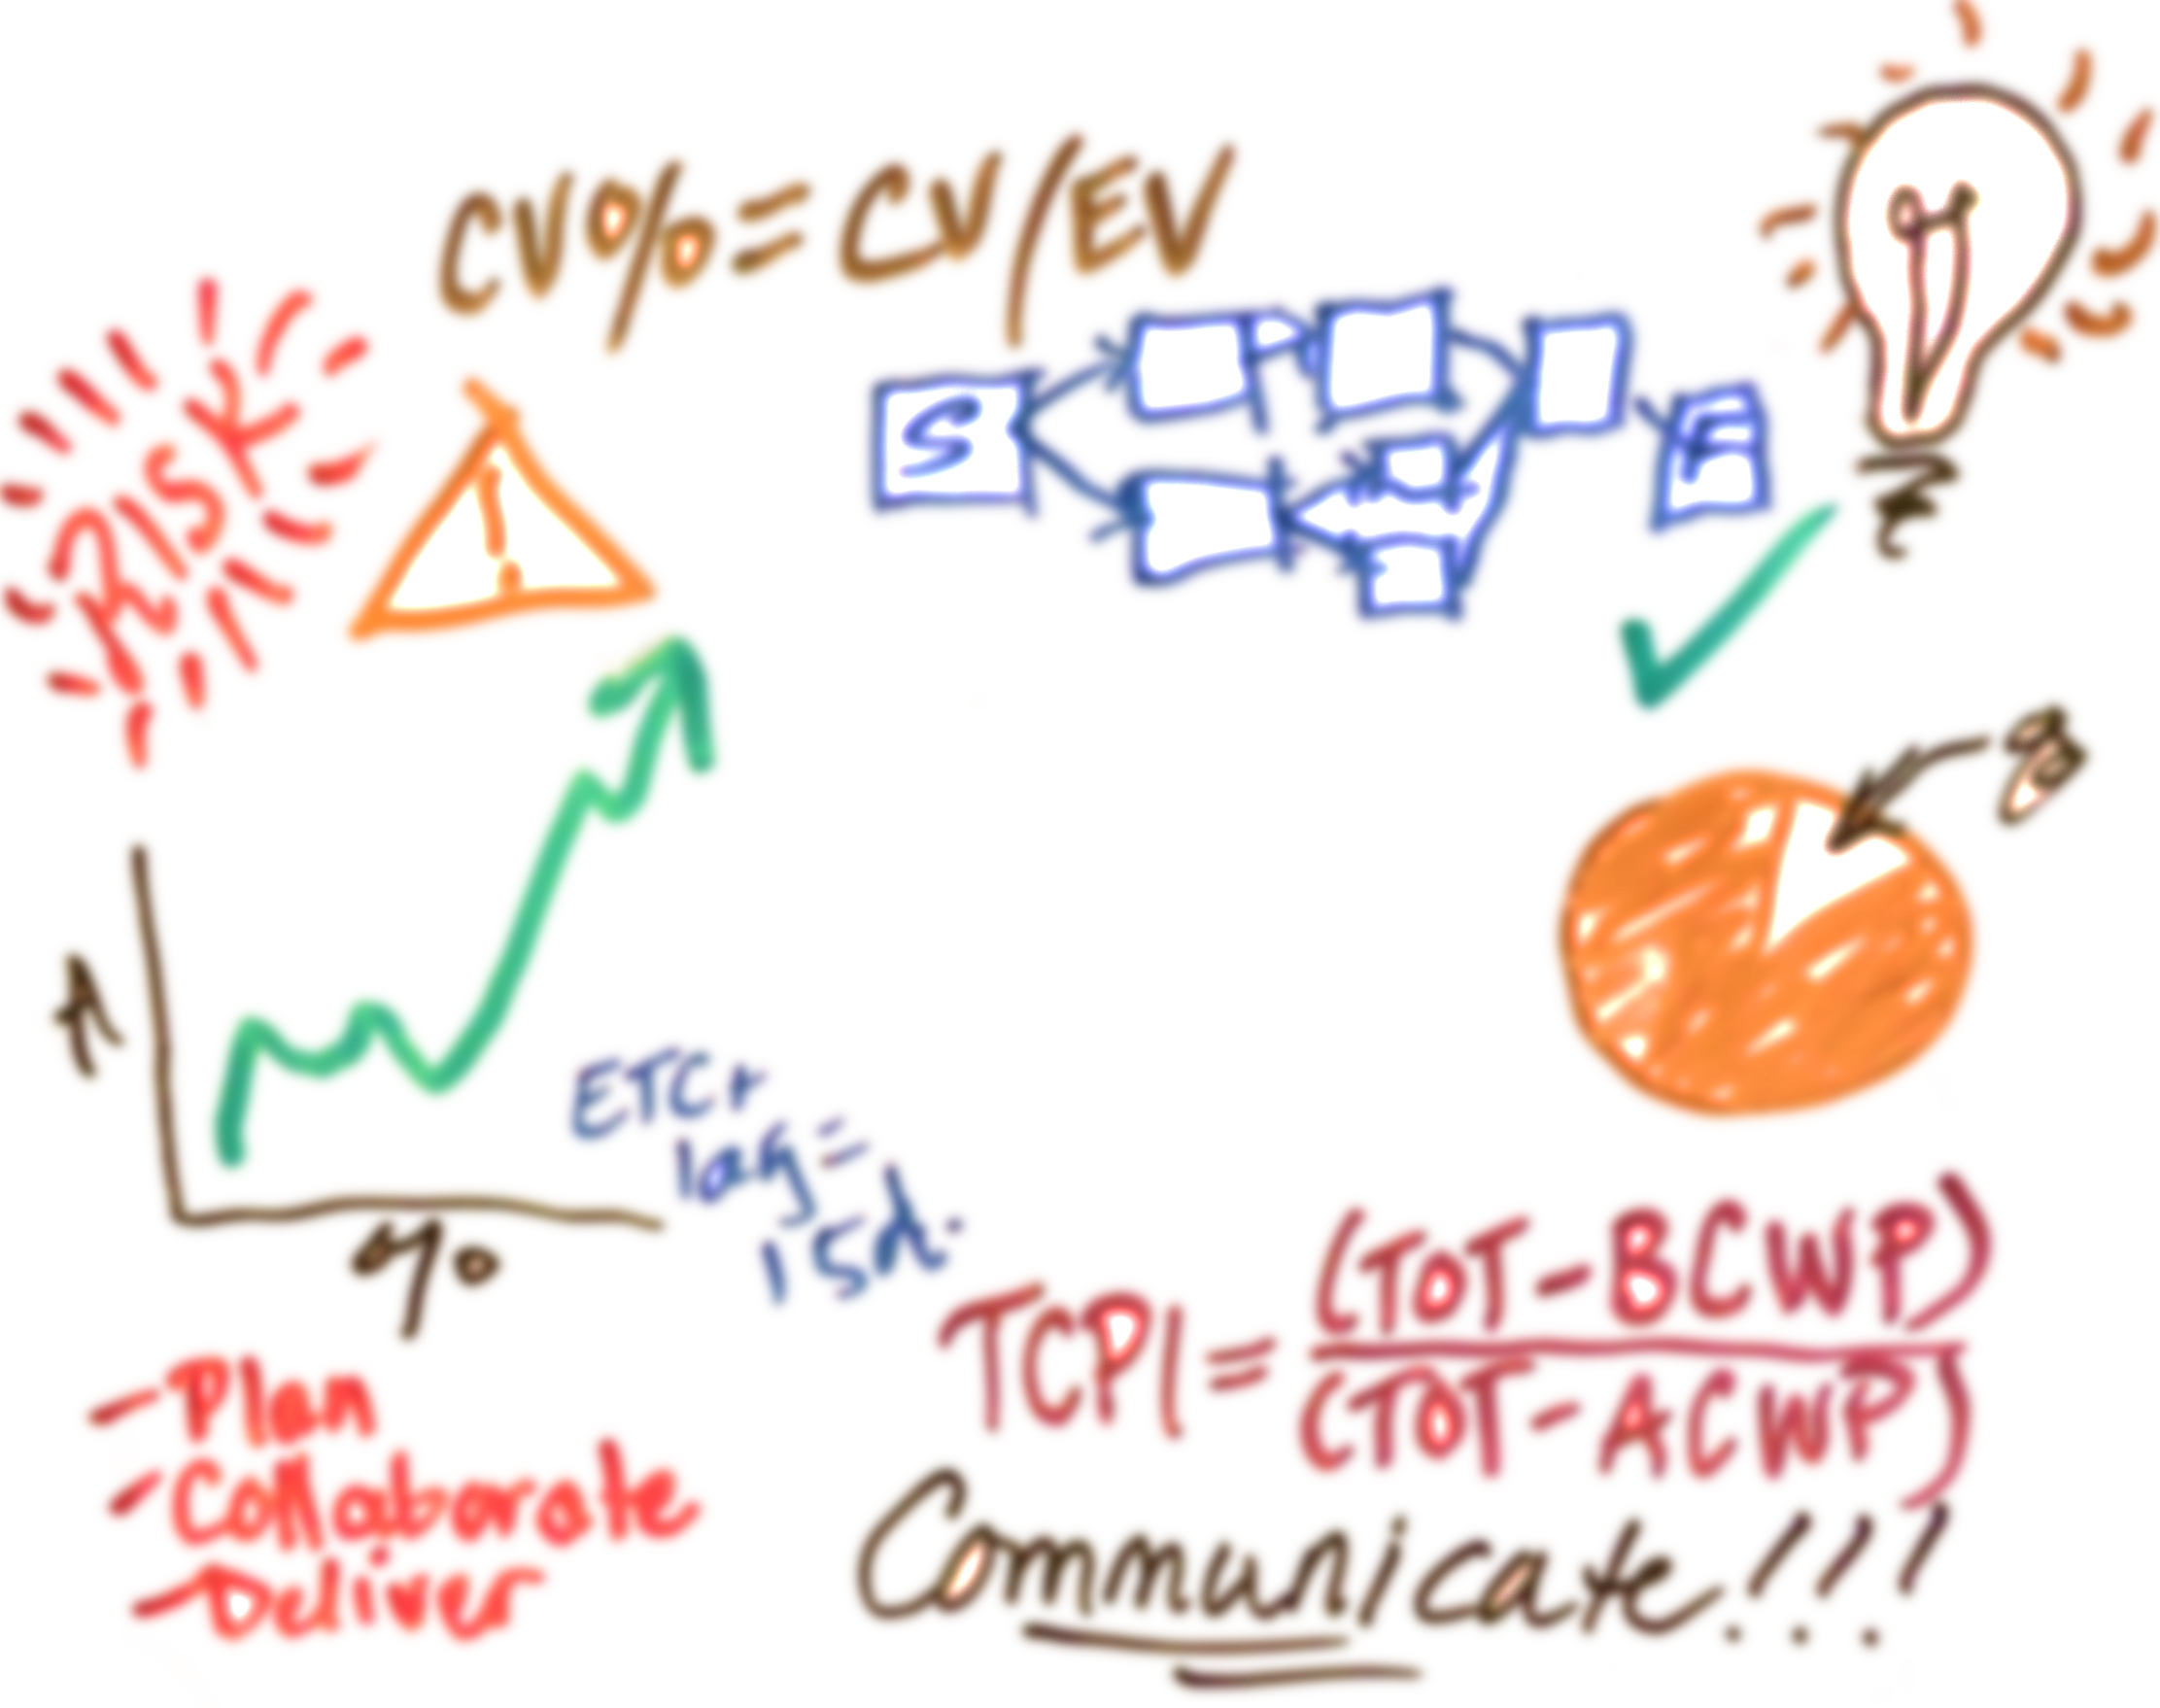 CV% = CV/EV
RISK
!
S
E
8
ETCr
lag =
15d.
TCPI = (TOT-BCWP)
(TOT-ACWP)
- Plan
- Collaborate
- Deliver
Communicate!!!